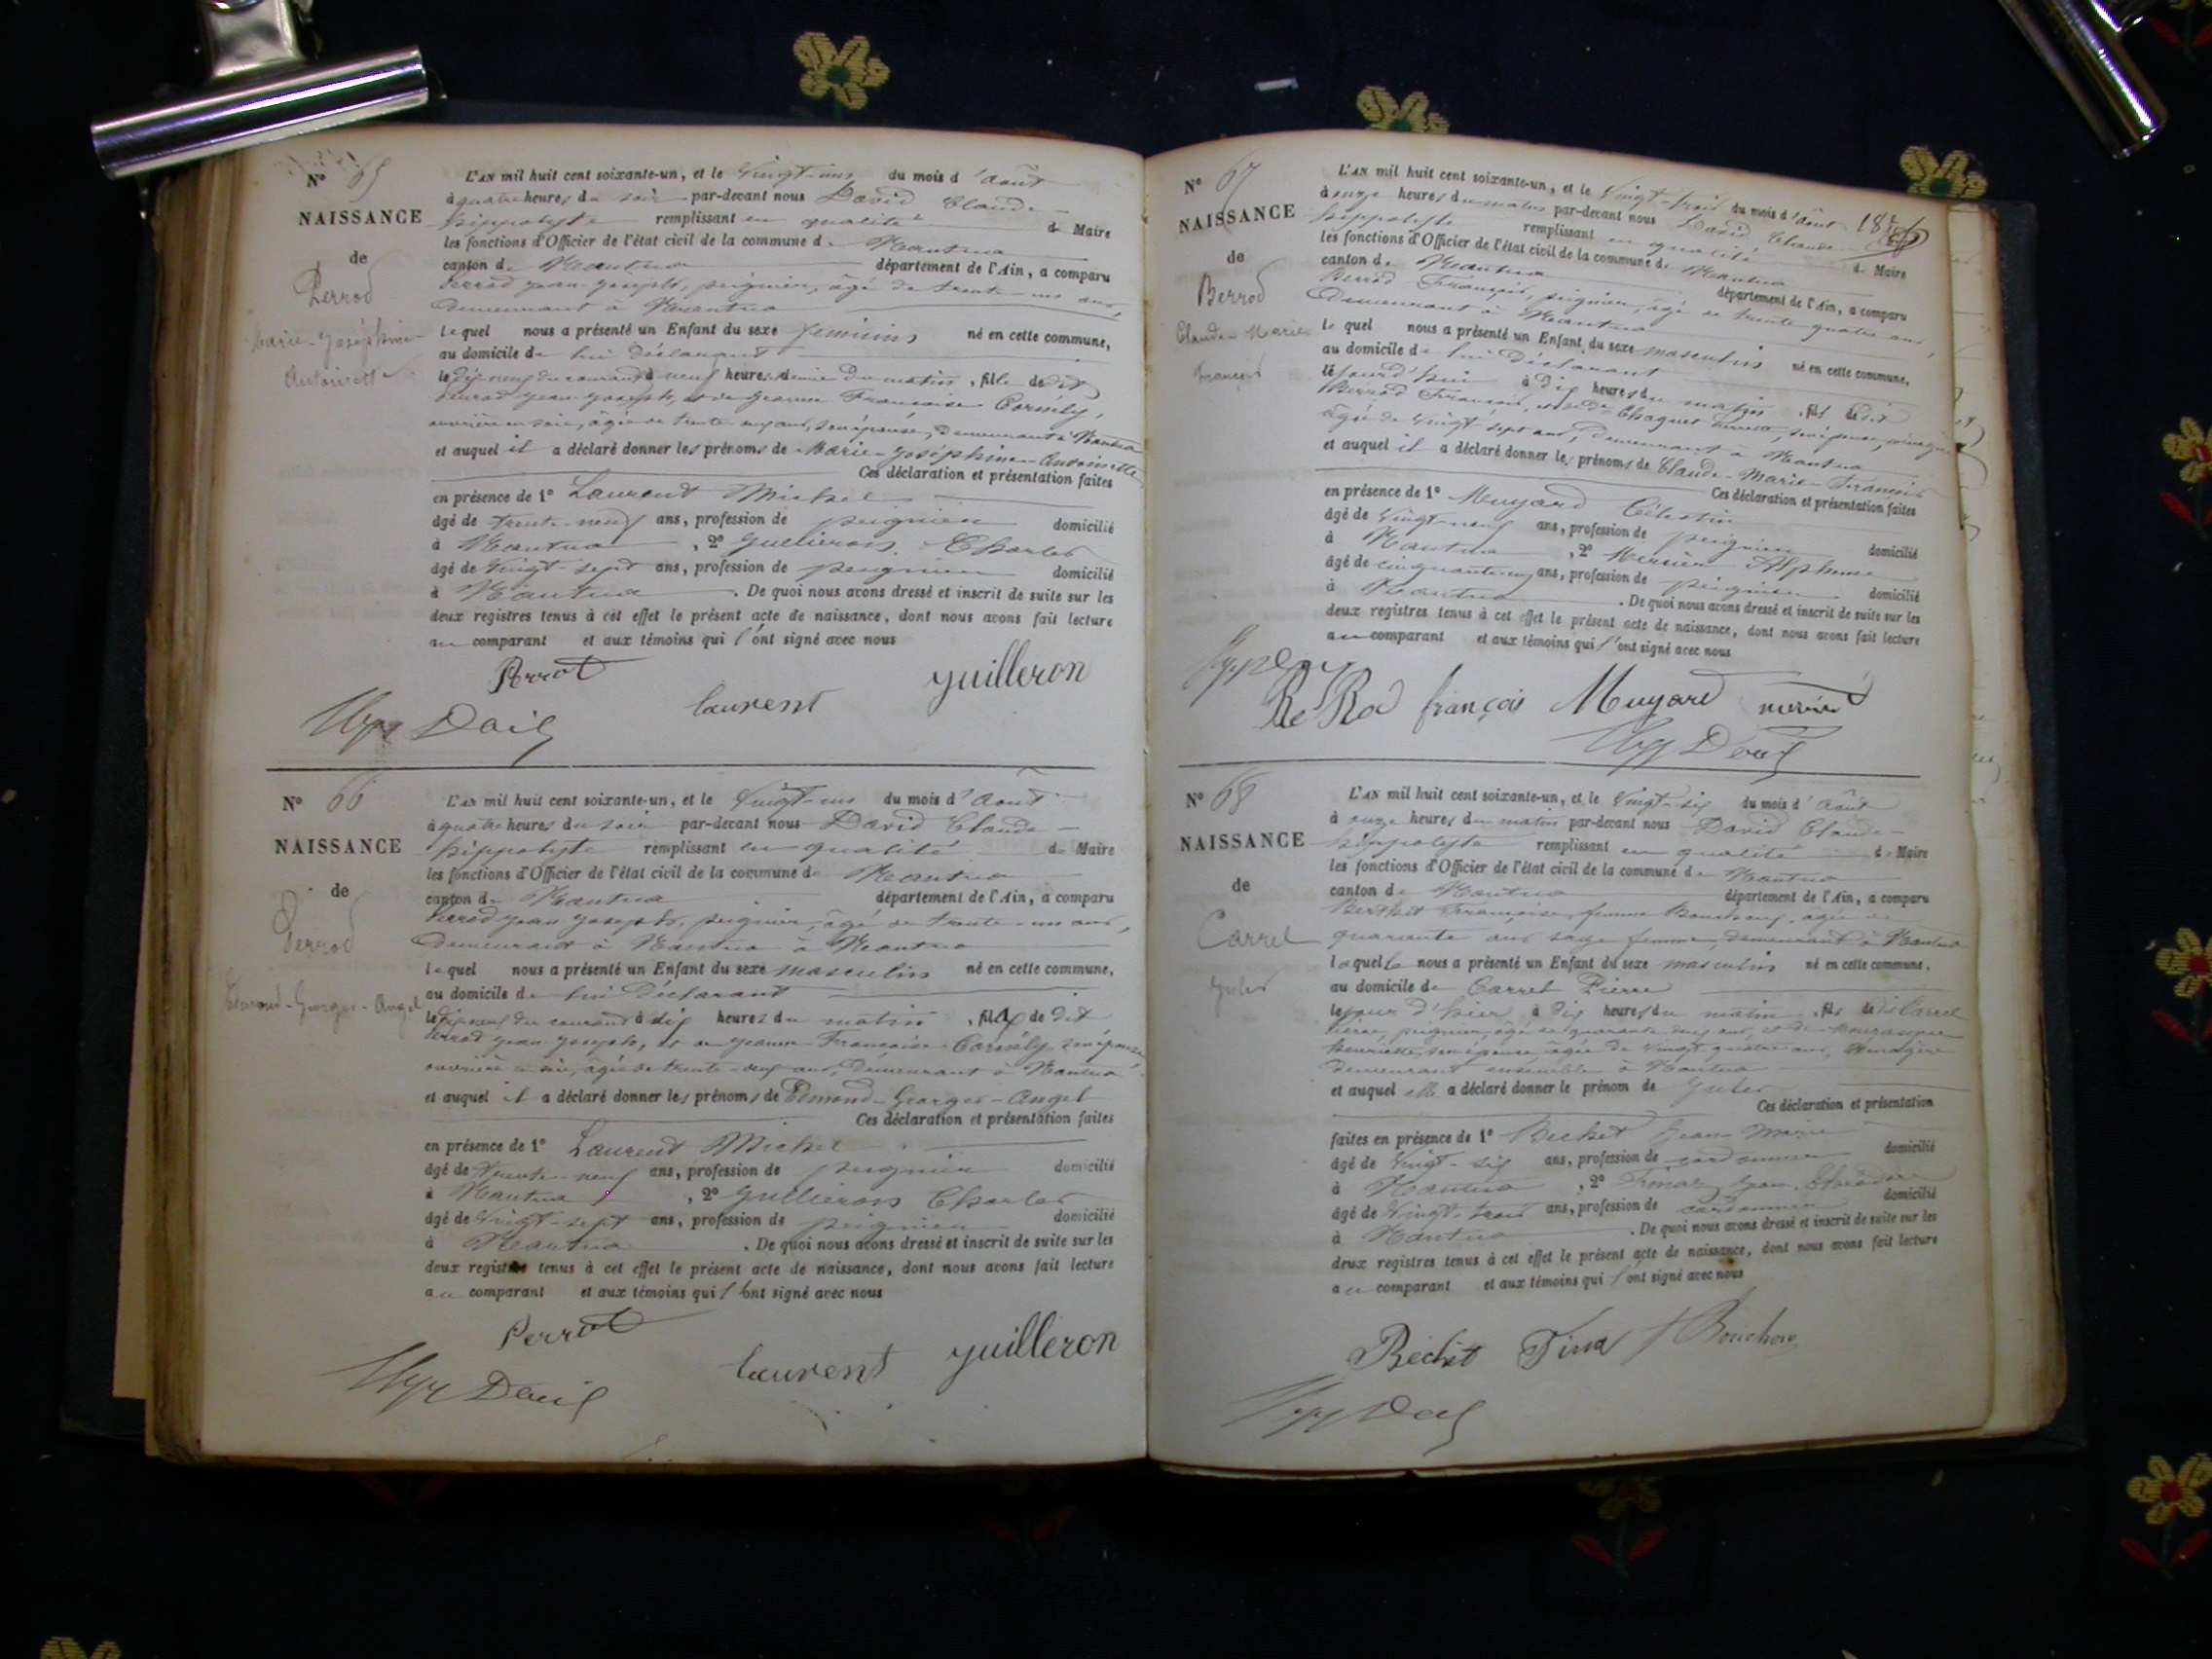 N° 65
NAISSANCE
de
Perrod
Marie-Joséphine
Antoinette
L'AN mil huit cent soixante-un, et le vingt-un du mois d'août
à quatre heures du soir par-devant nous David Claude-
hippolyte remplissant en qualité de Maire
les fonctions d'Officier de l'état civil de la commune de Nantua
canton de Nantua département de l'Ain, a comparu
Perrod jean joseph, peignier, âgé de trente-un ans,
demeurant à Nantua
lequel nous a présenté un Enfant du sexe féminin né en cette commune,
au domicile de lui déclarant
le dix-neuf du courant à neuf heures demie du matin, fille de dit
Perrod jean joseph, et de jeanne Françoise Cornély,
ouvrière en soie, âgée de trente ans, son épouse, demeurant à Nantua
et auquel il a déclaré donner les prénoms de Marie-Joséphine-Antoinette
Ces déclaration et présentation faites
en présence de 1° Laurent Michel
âgé de trente-neuf ans, profession de peignier domicilié
à Nantua, 2° Guilleron Charles
âgé de vingt-sept ans, profession de peignier domicilié
à Nantua. De quoi nous avons dressé et inscrit de suite sur les
deux registres tenus à cet effet le présent acte de naissance, dont nous avons fait lecture
au comparant et aux témoins qui l'ont signé avec nous
Perrot
laurent
guilleron
Hyp David
N° 66
NAISSANCE
de
Perrod
Edmond-Georges-Angel
L'AN mil huit cent soixante-un, et le vingt-un du mois d'août
à quatre heures du soir par-devant nous David Claude-
hippolyte remplissant en qualité de Maire
les fonctions d'Officier de l'état civil de la commune de Nantua
canton de Nantua département de l'Ain, a comparu
Perrod jean joseph, peignier, âgé de trente-un ans,
demeurant à Nantua à Nantua
lequel nous a présenté un Enfant du sexe masculin né en cette commune,
au domicile de lui déclarant
le dix neuf du courant à dix heures du matin, fils de dit
Perrod jean joseph, et de jeanne Françoise Cornély son épouse,
ouvrière en soie, âgée de trente ans, demeurant à Nantua
et auquel il a déclaré donner les prénoms de Edmond-Georges-Angel
Ces déclaration et présentation faites
en présence de 1° Laurent Michel
âgé de trente-neuf ans, profession de peignier domicilié
à Nantua, 2° Guilleron Charles
âgé de vingt-sept ans, profession de peignier domicilié
à Nantua. De quoi nous avons dressé et inscrit de suite sur les
deux registres tenus à cet effet le présent acte de naissance, dont nous avons fait lecture
au comparant et aux témoins qui l'ont signé avec nous
Perrot
laurent
guilleron
Hyp David
N° 67
NAISSANCE
de
Berrod
Claude-Marie
François
L'AN mil huit cent soixante-un, et le vingt-trois du mois d'août
à onze heures du matin par-devant nous David Claude
hippolyte remplissant en qualité de Maire
les fonctions d'Officier de l'état civil de la commune de Nantua
canton de Nantua département de l'Ain, a comparu
Berrod François, peignier, âgé de trente quatre ans,
demeurant à Nantua
lequel nous a présenté un Enfant du sexe masculin né en cette commune,
au domicile de lui déclarant
le jourd'hui à dix heures du matin, fils dudit
Berrod François, et de Chaquet, son épouse,
âgée de vingt sept ans, demeurant à Nantua
et auquel il a déclaré donner les prénoms de Claude-Marie-François
Ces déclaration et présentation faites
en présence de 1° Muyard Célestin
âgé de vingt-neuf ans, profession de peignier domicilié
à Nantua, 2° Mercier Alphonse
âgé de ans, profession de peignier domicilié
à Nantua. De quoi nous avons dressé et inscrit de suite sur les
deux registres tenus à cet effet le présent acte de naissance, dont nous avons fait lecture
au comparant et aux témoins qui l'ont signé avec nous
BeRod françois Muyard mercier
Hyp David
N° 68
NAISSANCE
de
Carrel
Jules
L'AN mil huit cent soixante-un, et le vingt-six du mois d'août
à onze heures du matin par-devant nous David Claude-
hippolyte remplissant en qualité de Maire
les fonctions d'Officier de l'état civil de la commune de Nantua
canton de Nantua département de l'Ain, a comparu
Berthet Françoise, femme Bouchony, âgée de
quarante ans sage femme, demeurant à Nantua
laquelle nous a présenté un Enfant du sexe masculin né en cette commune,
au domicile de Carrel Pierre
le jour d'hier à dix heures du matin, fils de dit Carrel
Pierre, peignier, âgé de quarante ans, et de
henriette, son épouse, âgée de vingt quatre ans, ménagère
demeurant ensemble à Nantua
et auquel elle a déclaré donner le prénom de Jules
Ces déclaration et présentation
faites en présence de 1° Bechet Jean Marie
âgé de vingt-six ans, profession de cordonnier domicilié
à Nantua, 2° Jean domicilié
âgé de vingt-trois ans, profession de cordonnier
à Nantua. De quoi nous avons dressé et inscrit de suite sur les
deux registres tenus à cet effet le présent acte de naissance, dont nous avons fait lecture
au comparant et aux témoins qui l'ont signé avec nous
Bechet
Hyp David